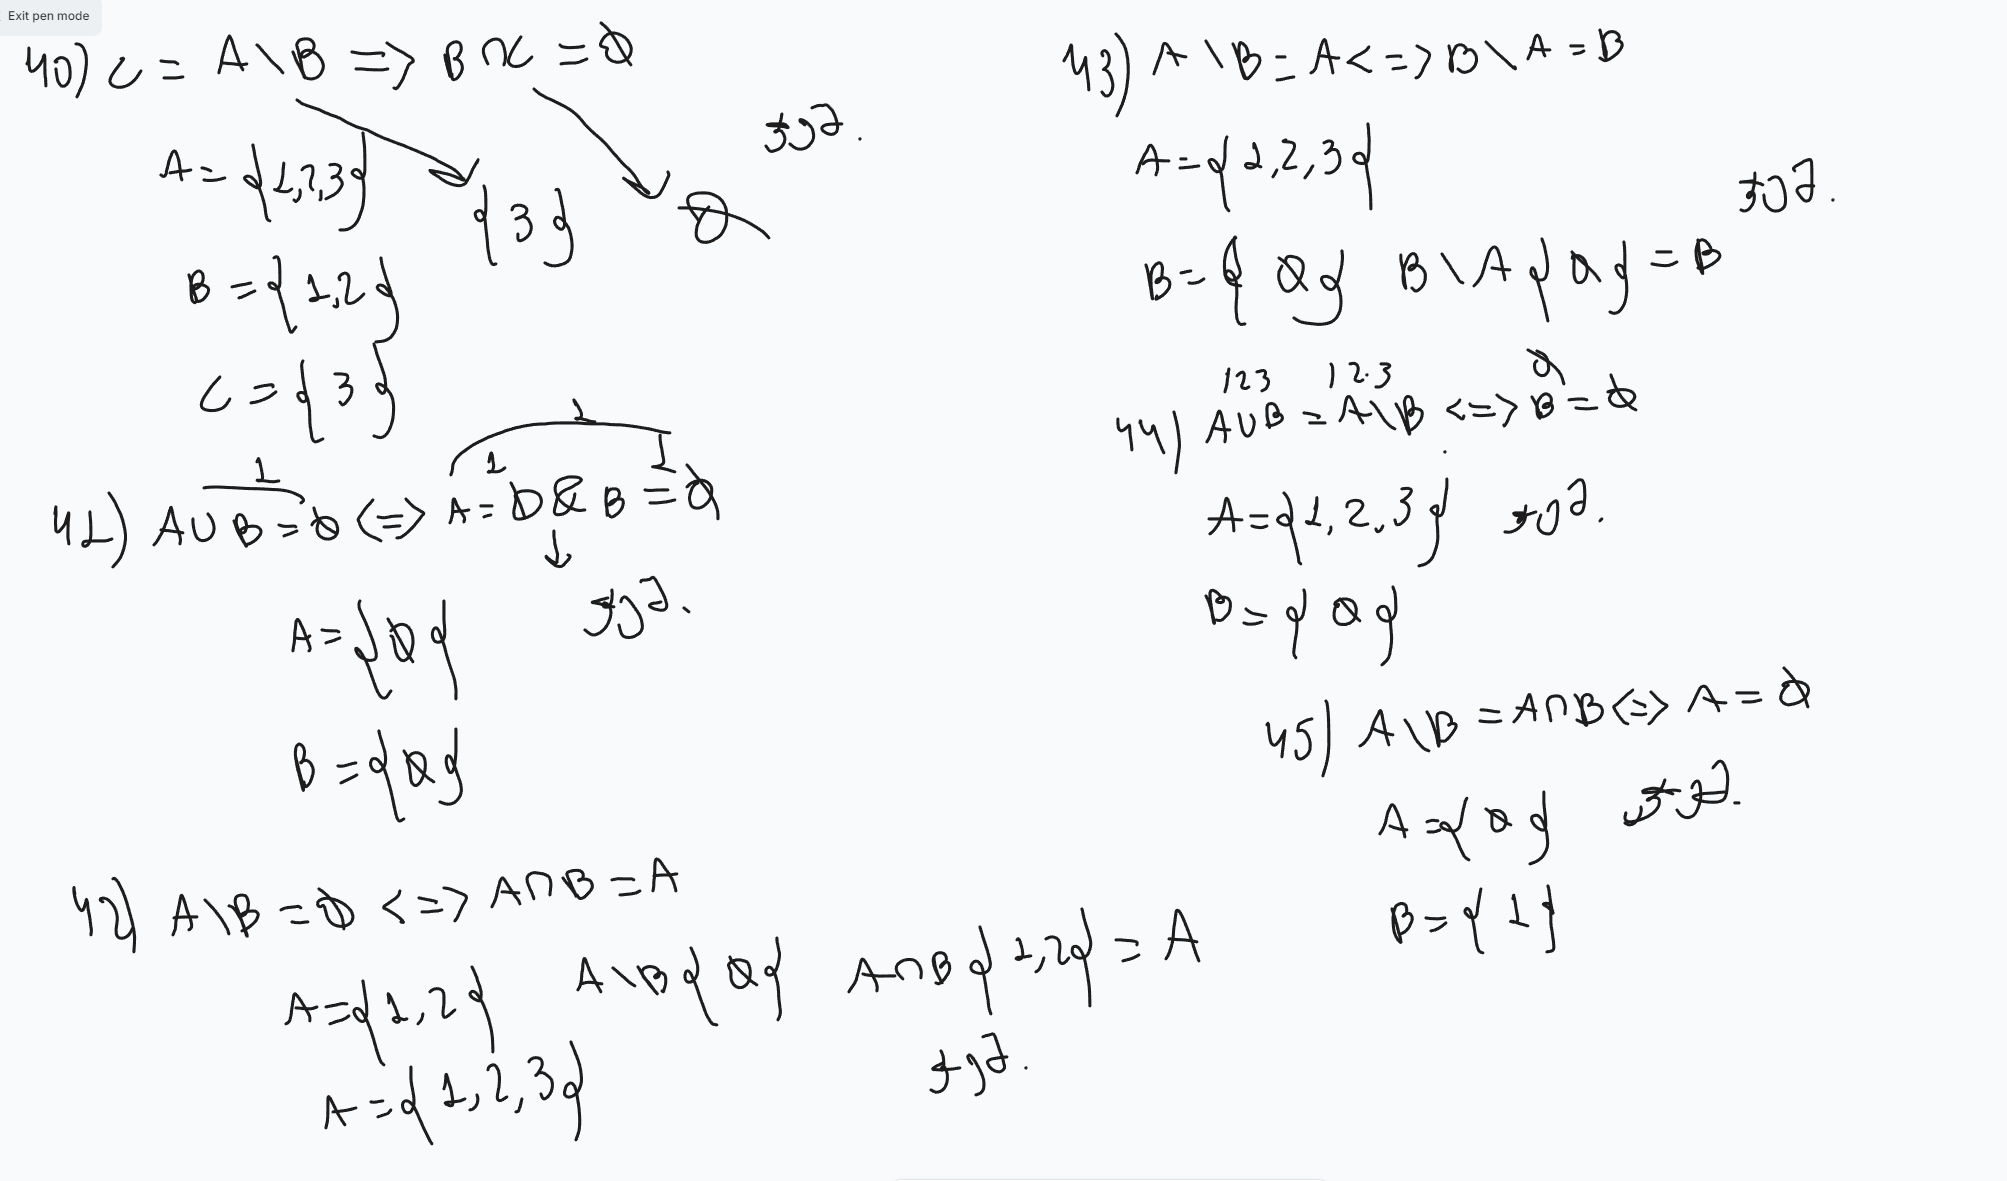 Exit pen mode
40) C = A\B => B∩C = Ø
ჭეშ.
A = {1,2,3}
{3}
Ø
B = {1,2}
C = {3}
1
1 1 1
41) A∪B = Ø <=> A = Ø & B = Ø
ჭეშ.
A = {Ø}
B = {Ø}
42) A\B = Ø <=> A∩B = A
A = {1,2} A\B {Ø} A∩B {1,2} = A
A = {1,2,3}
ჭეშ.
43) A\B = A <=> B\A = B
A = {1,2,3}
ჭეშ.
B = {Ø} B\A {Ø} = B
123 123 Ø
44) A∪B = A\B <=> B = Ø
A = {1,2,3} ჭეშ.
B = {Ø}
45) A\B = A∩B <=> A = Ø
A = {Ø} ჭეშ.
B = {1}